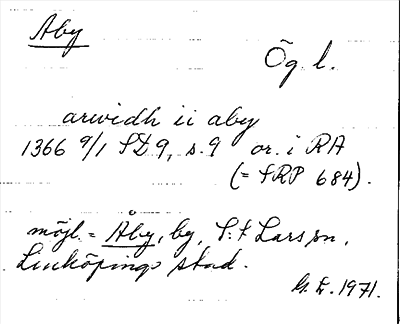 Åby
Ög. l.
arwidh ii aby
1366 9/1 SD 9, s. 9 or. i RA
(= SRP 684).
möjl. = Åby, by, S:t Lars sn,
Linköpings stad.
G. L. 1971.